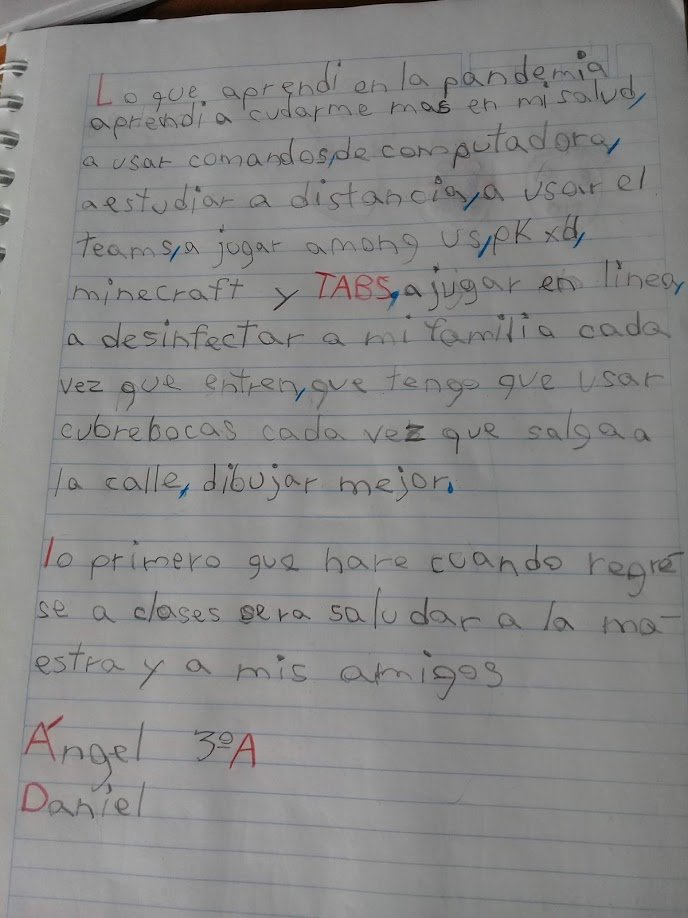 Lo que aprendi en la pandemia
aprendi a cudarme mas en mi salud,
a usar comandos, de computadora,
a estudiar a distancia, a usar el
teams, a jugar among us, pk xd,
minecraft y TABS, a jugar en linea,
a desinfectar a mi familia cada
vez que entren, que tengo que usar
cubrebocas cada vez que salga a
la calle, dibujar mejor.
lo primero que hare cuando regre-
se a clases sera saludar a la ma-
estra y a mis amigos
Ángel 3ºA
Daniel